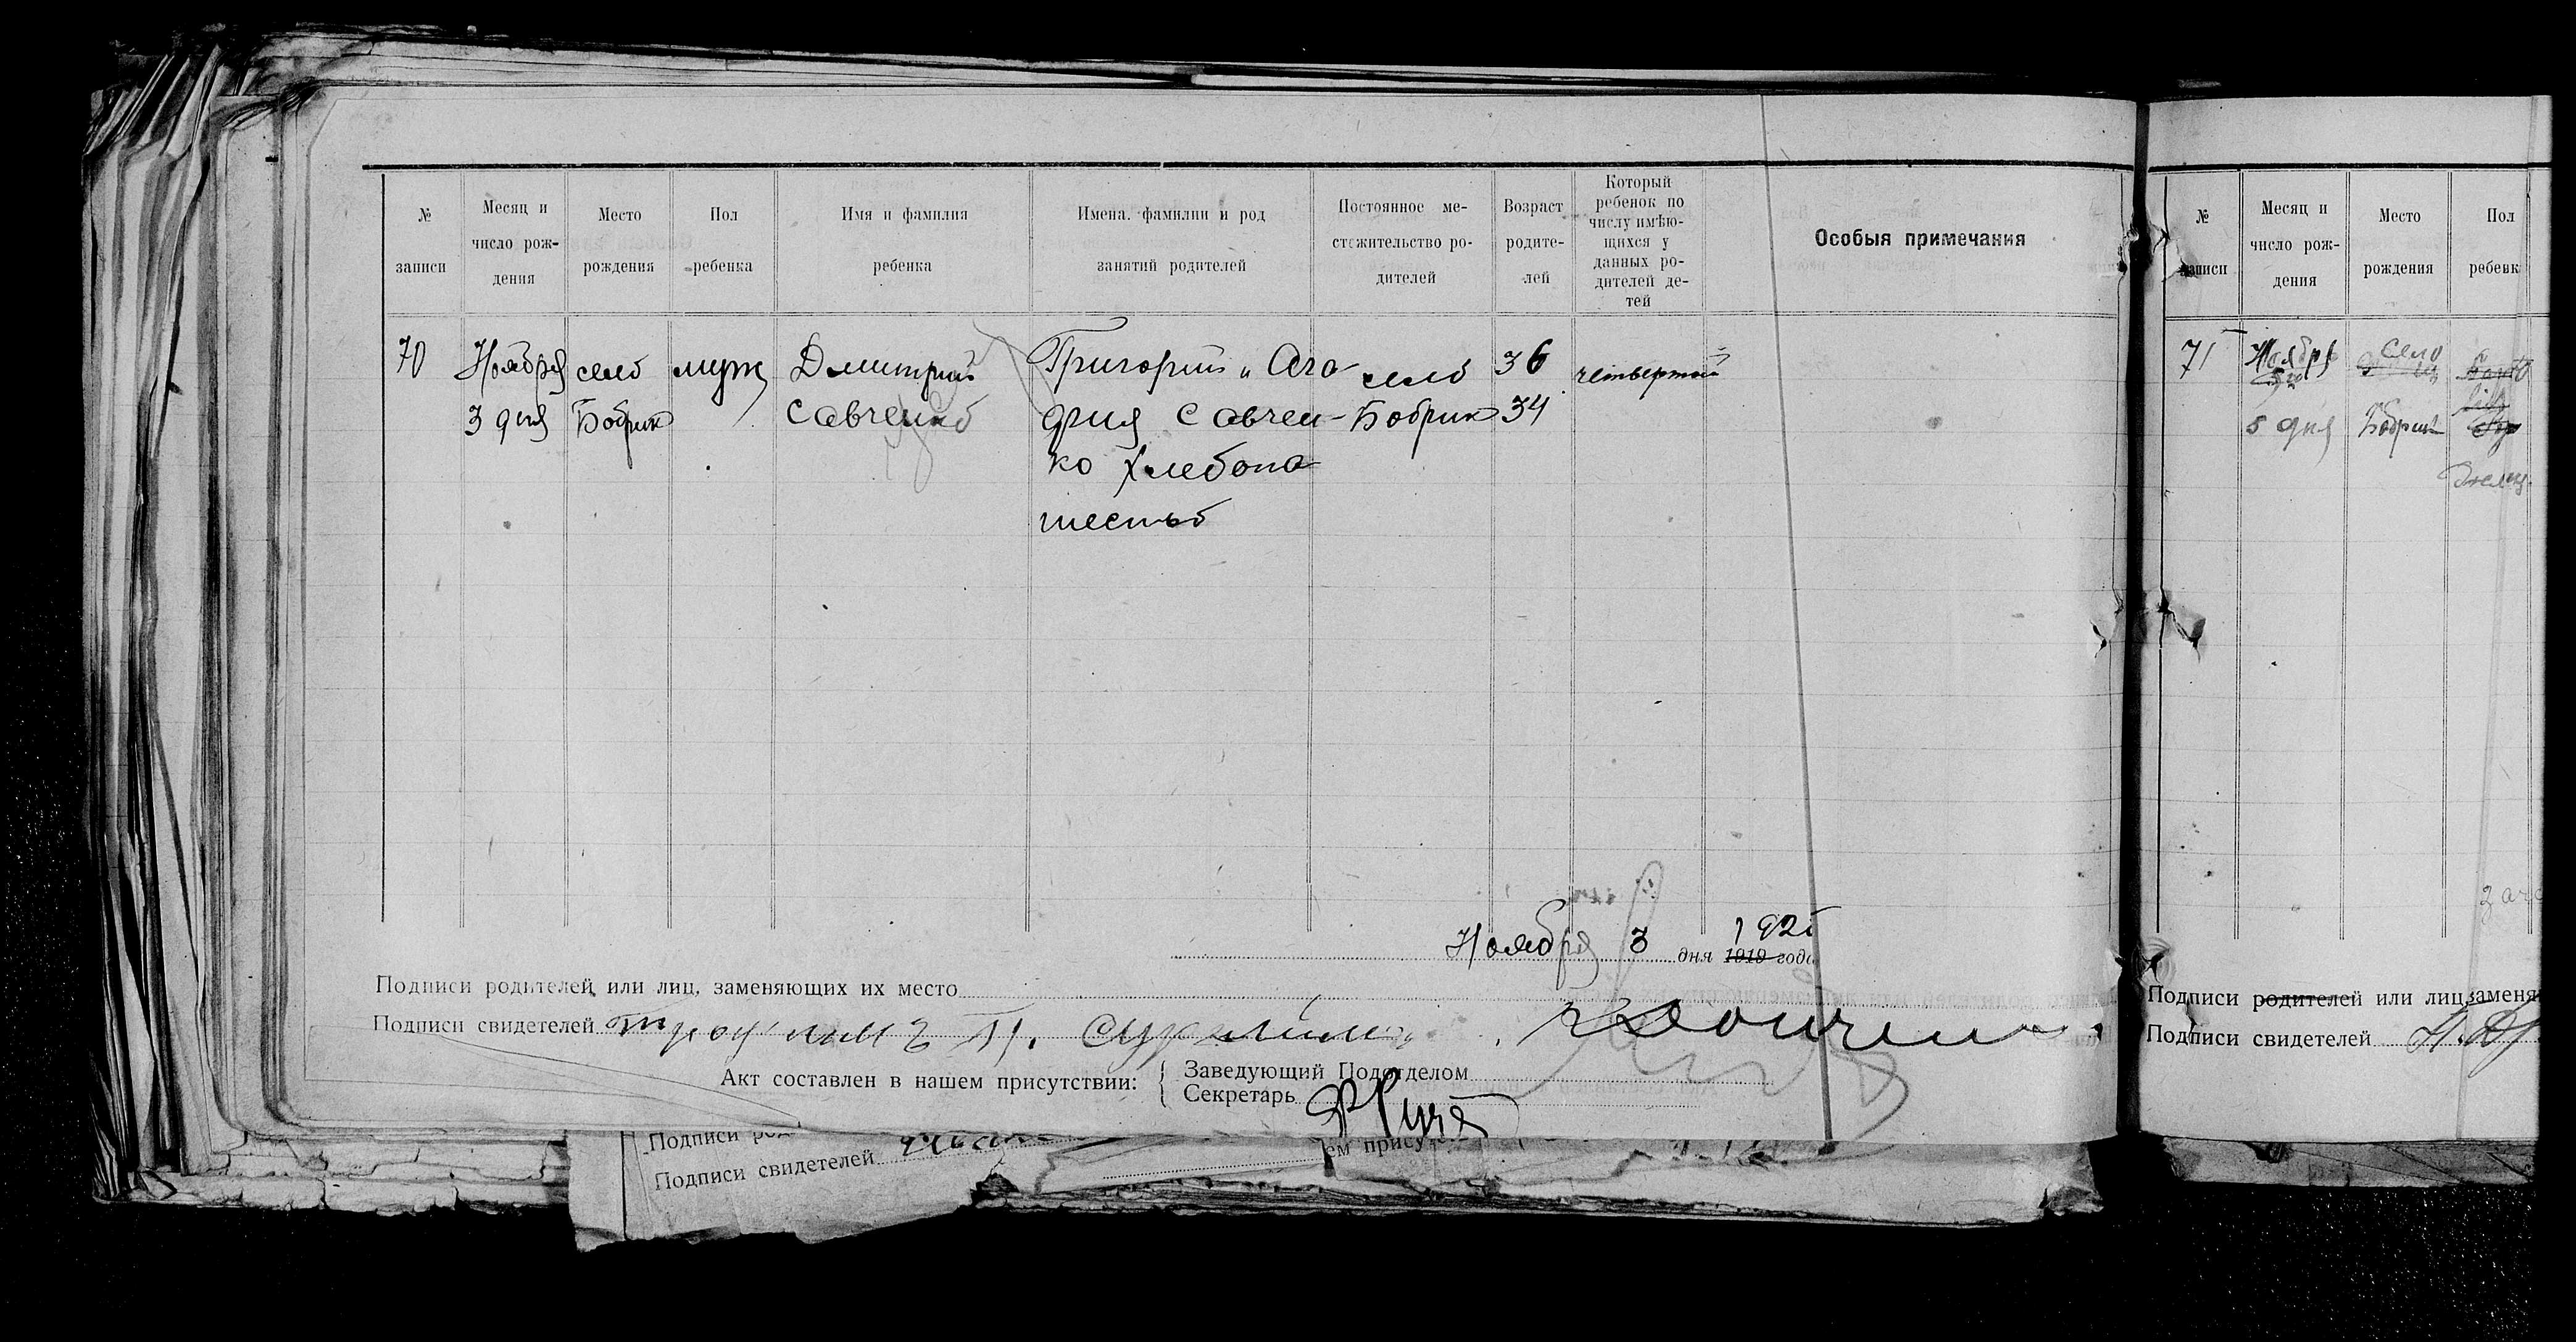 № записи
Месяц и число рождения
Место рождения
Пол ребенка
Имя и фамилия ребенка
Имена, фамилии и род занятий родителей
Постоянное местожительство родителей
Возраст родителей
Который ребенок по числу имѣющихся у данных родителей детей
Особыя примечания
70
Ноября
3 дня
село
Бобрик
муж
Дмитрий
Савченко
Григорий и Ага
фия Савчен-
ко хлебопа
шество
село
Бобрик
36
34
четвертый
Ноября 3 дня 1919 года
Подписи родителей или лиц, заменяющих их место
Подписи свидетелей
Акт составлен в нашем присутствии:
Заведующий Подотделом
Секретарь
Подписи свидетелей
ем присут
№ записи
Месяц и число рождения
Место рождения
Пол ребенк
71
Ноября
5 дня
село
Бобрик
Подписи родителей или лиц заменя
Подписи свидетелей